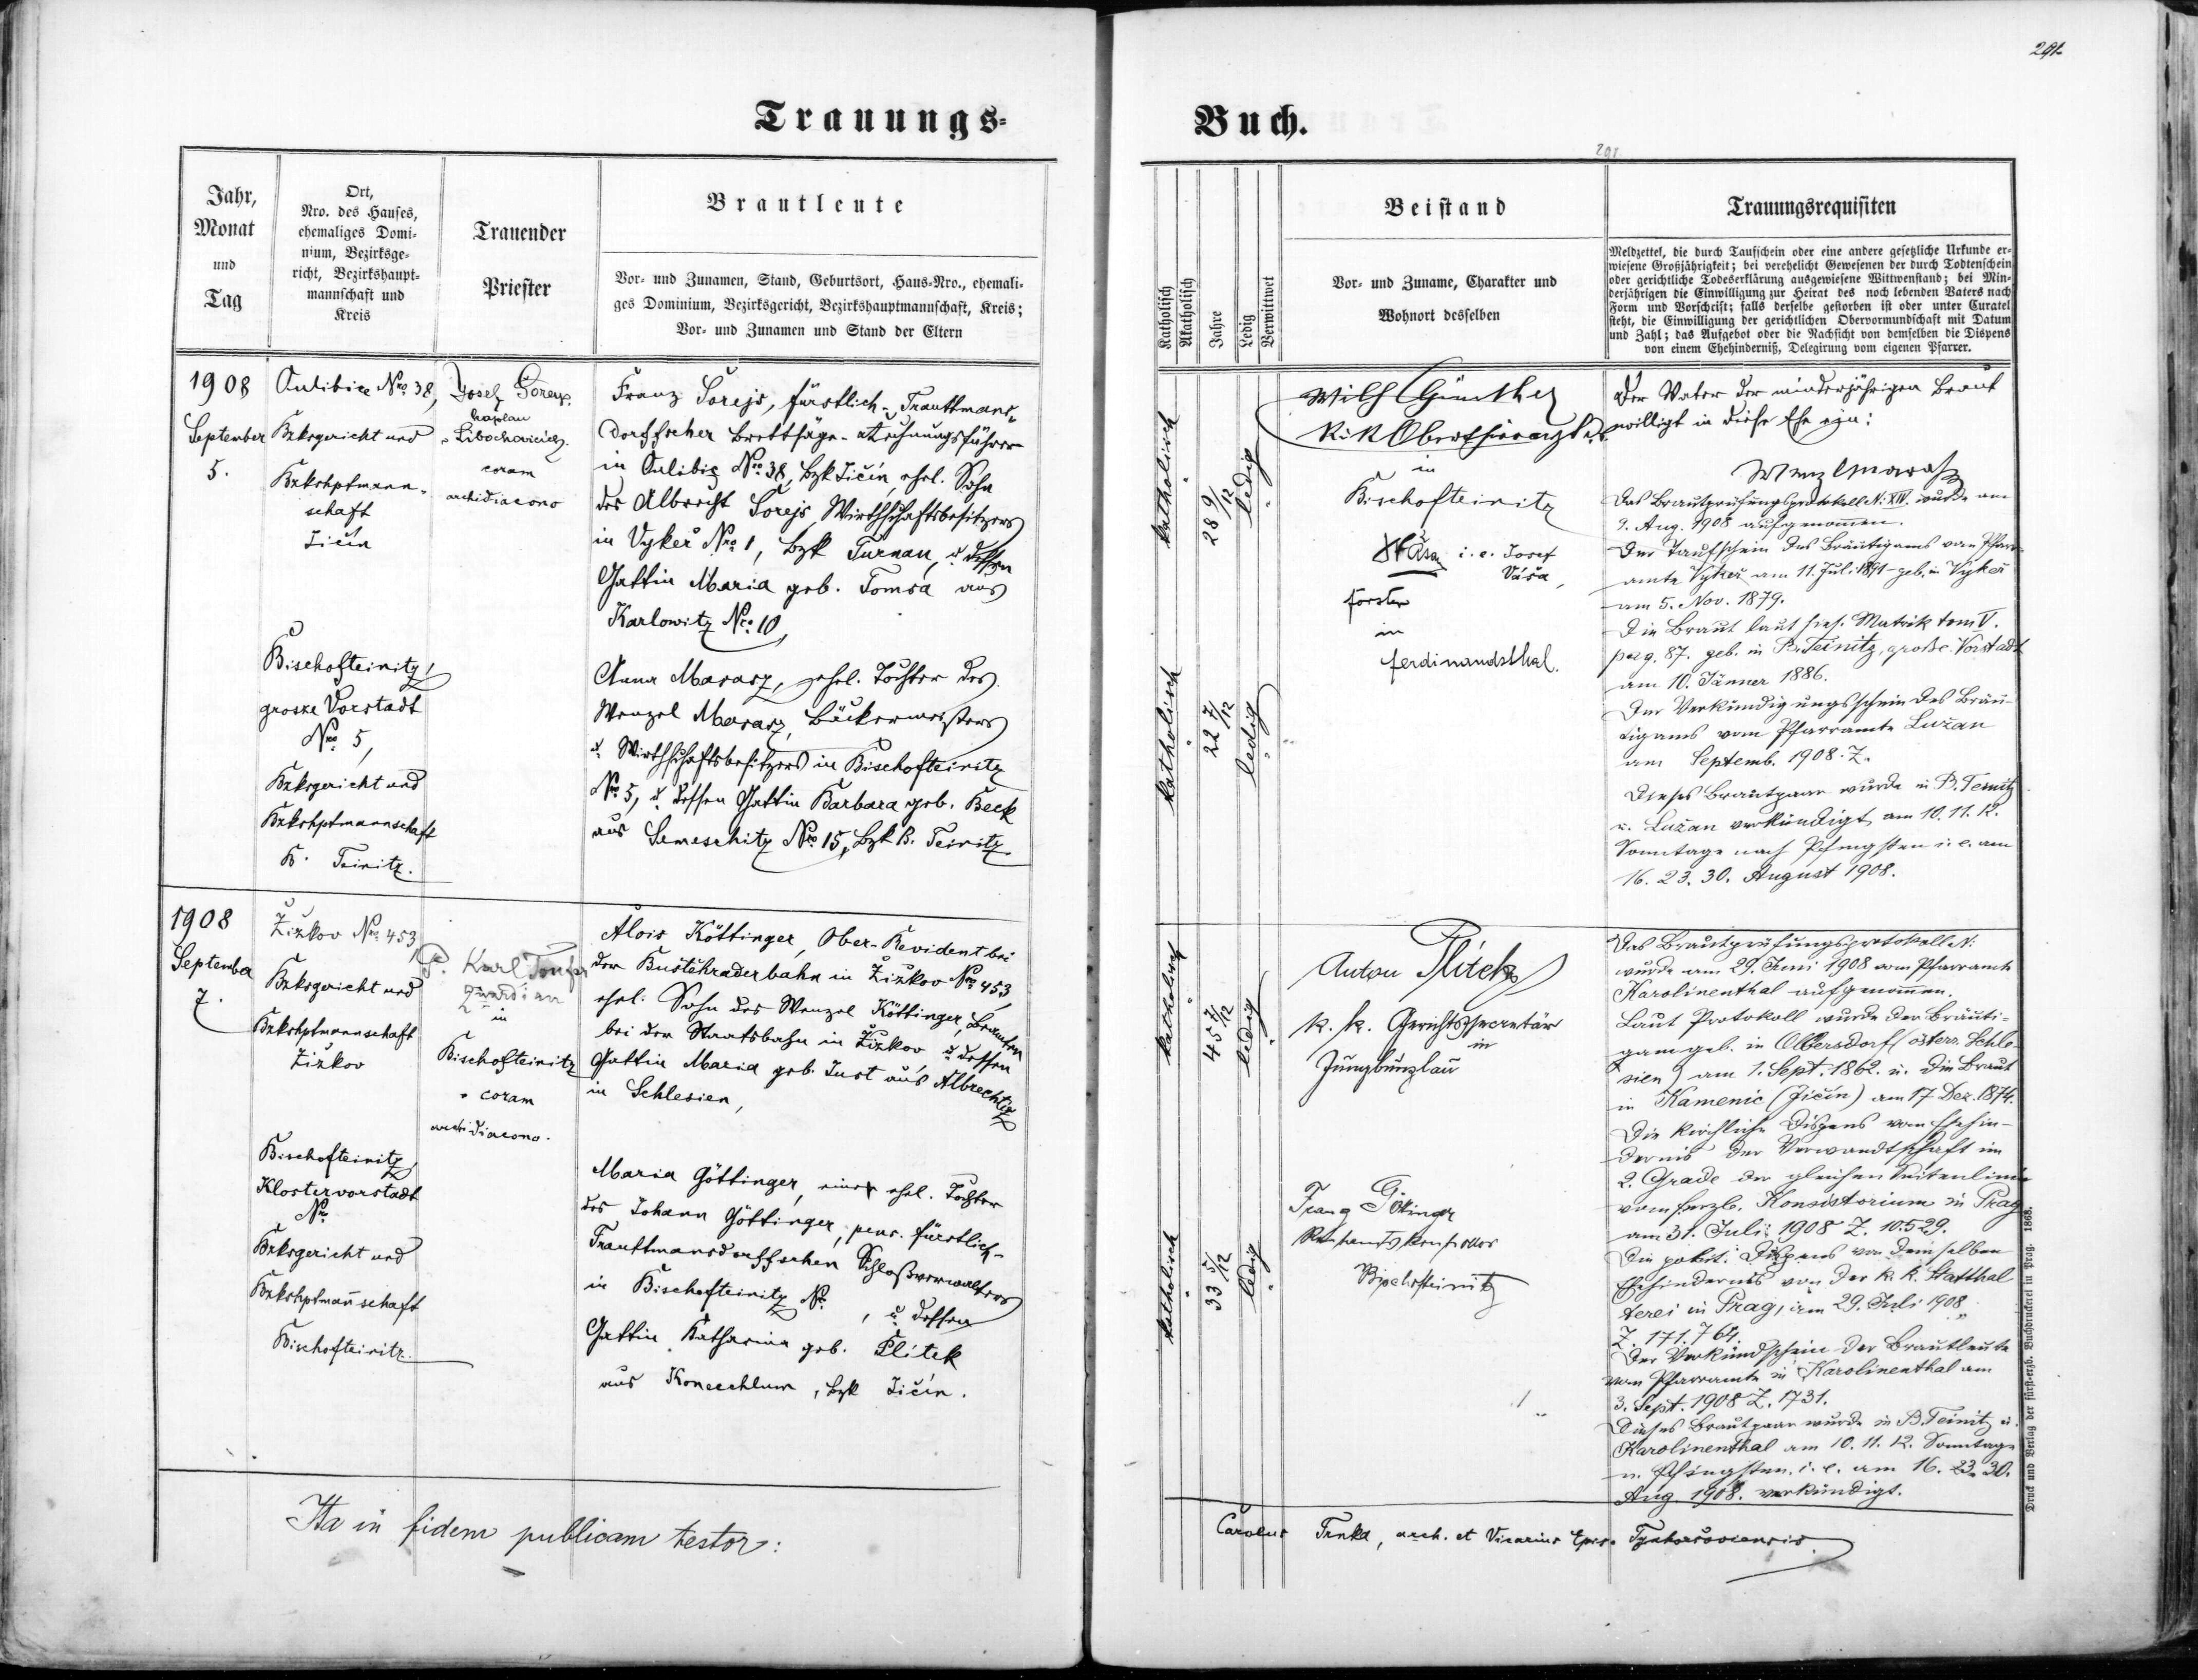 291.
Trauungs-
Buch.
291
Jahr,
Monat
und
Tag
Ort,
Nro. des Hauses,
ehemaliges Domi-
nium, Bezirksge-
richt, Bezirkshaupt-
mannschaft und
Kreis
Trauender
Priester
Brautleute
Vor- und Zunamen, Stand, Geburtsort, Haus-Nro., ehemali-
ges Dominium, Bezirksgericht, Bezirkshauptmannschaft, Kreis;
Vor- und Zunamen und Stand der Eltern
Katholisch
Akatholisch
Jahre
Ledig
Verwittwet
Beistand
Vor- und Zuname, Charakter und
Wohnort desselben
Trauungsrequisiten
Meldzettel, die durch Taufschein oder eine andere gesetzliche Urkunde er-
wiesene Großjährigkeit; bei verehelicht Gewesenen der durch Todtenschein
oder gerichtliche Todeserklärung ausgewiesene Wittwenstand; bei Min-
derjährigen die Einwilligung zur Heirat des noch lebenden Vaters nach
Form und Vorschrift; falls derselbe gestorben ist oder unter Curatel
steht, die Einwilligung der gerichtlichen Obervormundschaft mit Datum
und Zahl; das Aufgebot oder die Nachsicht von demselben die Dispens
von einem Ehehinderniß, Delegirung vom eigenen Pfarrer.
1908
September
5.
Aulibice Nro 38,
Bzksgericht und
Bzkshptmann-
schaft
Jičín
Josef
kaplan
Libochovicích
coram
archidiacono
Franz Sorejs, fürstlich-Trauttmans-
dorffscher Brettsäge-Rechnungsführer
in Aulibitz Nro 38, Bzk Jičín, ehel. Sohn
des Albrecht Sorejs Wirthschaftsbesitzers
in Vyker Nro 1, Bzk Turnau, u. dessen
Gattin Maria geb. Tomsa aus
Karlowitz Nro 10,
Bischofteinitz,
grosse Vorstadt
Nro 5,
Bzksgericht und
Bzkshptmannschaft
B. Teinitz.
Anna Marasz, ehel. Tochter des
Wenzel Marasz, Bäckermeisters
u. Wirthschaftsbesitzers in Bischofteinitz
Nro 5, u. dessen Gattin Barbara geb. Beck
aus Semeschitz Nro 15, Bzk B. Teinitz.
katholisch
28 9/12
ledig
katholisch
22 7/12
ledig
Wilh Günther
K.k. Oberthierarzt
in
Bischofteinitz
i. e. Josef
Váša,
Förster
in
Ferdinandsthal.
Der Vater der minderjährigen Braut
willigt in diese Ehe ein:
Wenzl Marasz
Das Brautprüfungsprotokoll N. XIV. wurde am
9. Aug. 1908 aufgenommen.
Der Taufschein des Bräutigams vom Pfarr-
amte Vyker am 11. Juli 1891 - geb. in Vyker
am 5. Nov. 1879.
Die Braut laut hies. Matrik tom V.
pag. 87. geb. in B. Teinitz, große Vorstadt
am 10. Jänner 1886.
Der Verkündigungsschein des Bräu-
tigams vom Pfarramte Lužan
am Septemb. 1908. Z.
Dieses Brautpaar wurde in B. Teinitz
u. Lužan verkündigt am 10. 11. 12.
Sonntage nach Pfingsten i. e. am
16. 23. 30. August 1908.
1908
September
7.
Žižkov Nro 453,
Bzksgericht und
Bzkshptmannschaft
Žižkov
P. Karl
Quardian
in
Bischofteinitz
coram
archidiacono.
Alois Köttinger, Ober-Revident bei
der Buštěhraderbahn in Žižkov Nro 453,
ehel. Sohn des Wenzel Köttinger, Beamten
bei der Staatsbahn in Žižkov, u. dessen
Gattin Maria geb. Just aus Albrechtitz
in Schlesien,
Bischofteinitz,
Klostervorstadt
Nro
Bzksgericht und
Bzkshptmannschaft
Bischofteinitz.
Maria Göttinger, ehel. Tochter
des Johann Göttinger, pens. fürstlich-
Trauttmansdorffschen Schloßverwalters
in Bischofteinitz Nro , u. dessen
Gattin Katharina geb. Plitek
aus Konecchlum, Bzk Jičín.
katholisch
45 7/12
ledig
katholisch
33 5/12
ledig
Anton Plitek
k. k. Gerichtssecretär
in
Jungbunzlau
Franz Göttinger
Bischofteinitz
Das Brautprüfungsprotokoll N.
wurde am 29. Juni 1908 vom Pfarramte
Karolinenthal aufgenommen.
Laut Protokoll wurde der Bräuti-
gam geb. in Olbersdorf (österr. Schle-
sien) am 1. Sept. 1862. u. die Braut
in Kamenic (Jičín) am 17 Dez. 1874.
Die kirchliche Dispens vom Ehehin-
dernis der Verwandtschaft im
2. Grade der gleichen Seitenlinie
vom f. erzb. Konsistorium in Prag
am 31. Juli 1908 Z. 10.529.
Die polit. Dispens von demselben
Ehehindernis von der k. k. Statthal
terei in Prag, am 29. Juli 1908
Z. 171.764.
Der Verkündschein der Brautleute
vom Pfarramte in Karolinenthal am
3. Sept. 1908 Z. 1731.
Dieses Brautpaar wurde in B. Teinitz u.
Karolinenthal am 10. 11. 12. Sonntage
n. Pfingsten. i. e. am 16. 23. 30.
Aug. 1908. verkündigt.
Ita in fidem publicam testor:
Carolus Trnka, arch. et Vicarius Epis.
Druck und Verlag der fürst-erzb. Buchdruckerei in Prag. 1868.